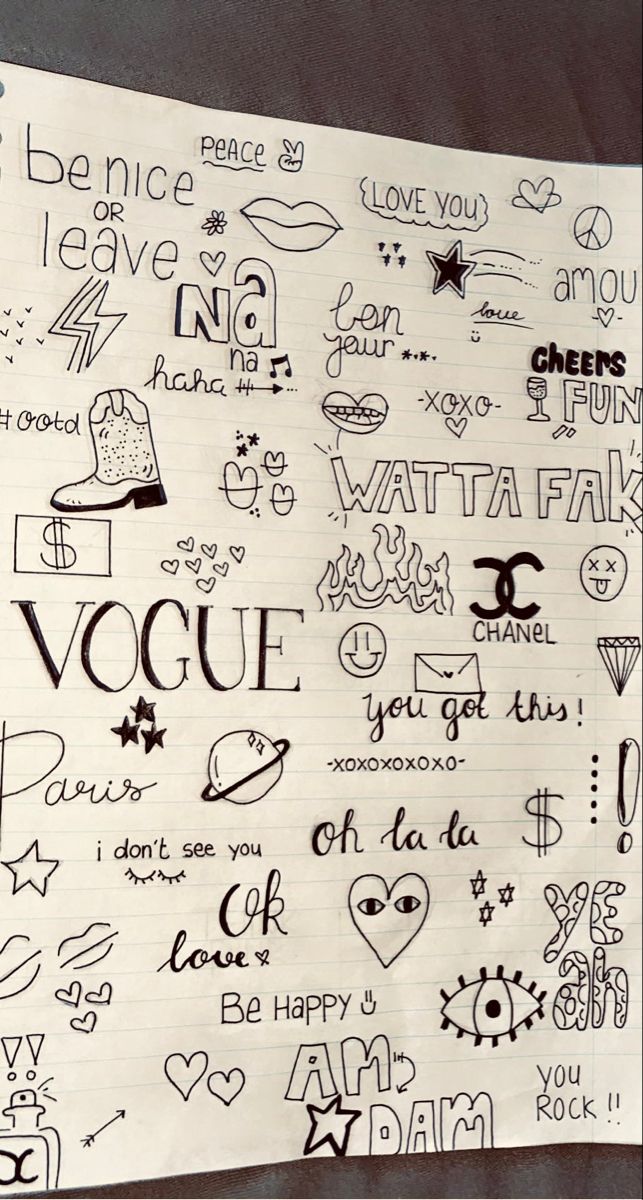 PEACE
be nice
OR
leave
LOVE YOU
amou
Na
na
haha
bon
jour
love
CHEERS
FUN
#ootd
-XOXO-
WATTA FAK
$
VOGUE
CHANEL
you got this!
Paris
-XOXOXOXOXO-
oh la la
$
!
i don't see you
Ok
love
YE
ah
Be HAPPY
!!
AM
DAM
you
ROCK !!